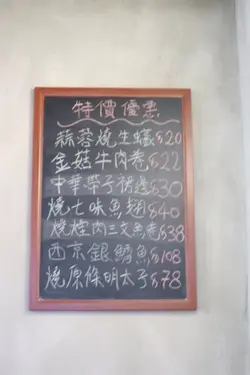 特價優惠
蒜蓉燒生蠔$20
金菇牛肉卷$22
中華帶子裙邊$30
燒七味魚翅$40
燒煙肉三文魚卷$38
西京銀鱈魚$108
燒原條明太子$78